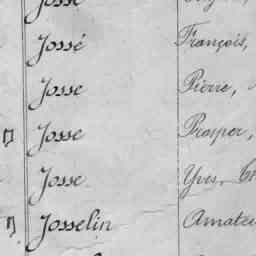 Josse
Jossé François,
Josse Pierre,
Josse Prosper,
Josse Yves,
Josselin